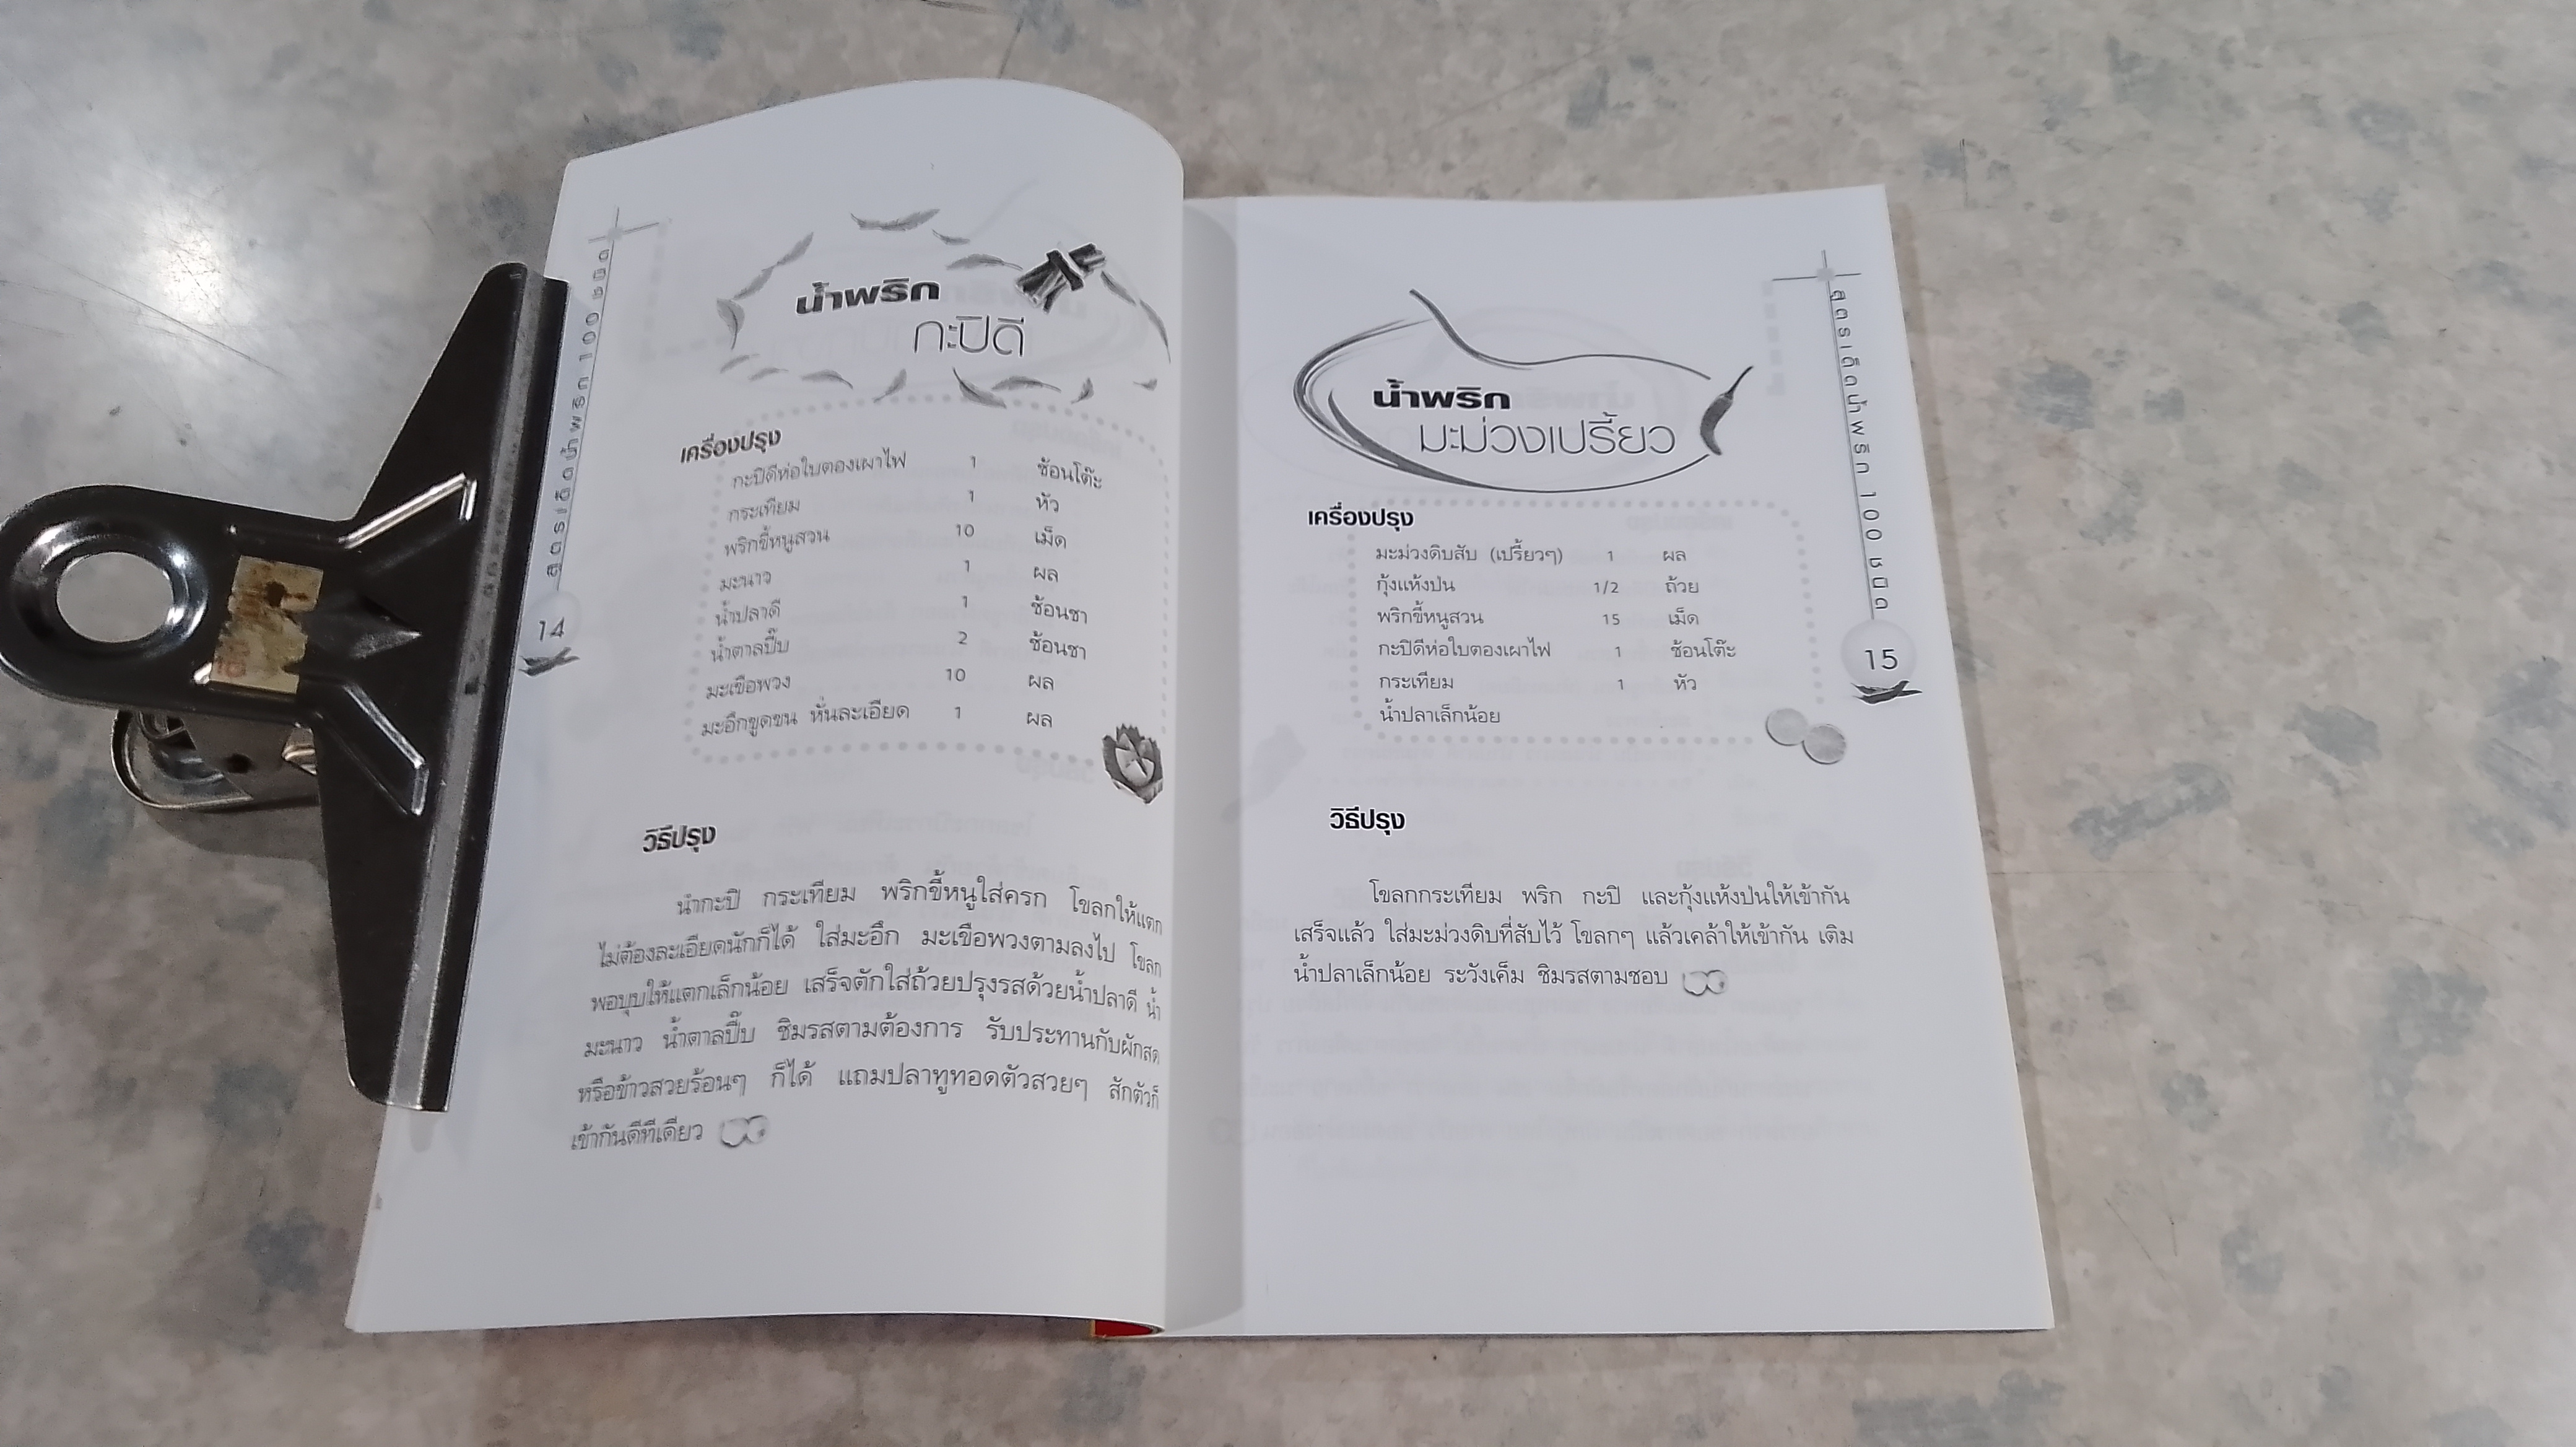 สูตรเด็ดน้ำพริก 100 ชนิด
14
น้ำพริก
กะปิดี
เครื่องปรุง
กะปิดีห่อใบตองเผาไฟ 1 ช้อนโต๊ะ
กระเทียม 1 หัว
พริกขี้หนูสวน 10 เม็ด
มะนาว 1 ผล
น้ำปลาดี 1 ช้อนชา
น้ำตาลปี๊บ 2 ช้อนชา
มะเขือพวง 10 ผล
มะอึกขูดขน หั่นละเอียด 1 ผล
วิธีปรุง
นำกะปิ กระเทียม พริกขี้หนูใส่ครก โขลกให้แตก
ไม่ต้องละเอียดนักก็ได้ ใส่มะอึก มะเขือพวงตามลงไป โขลก
พอบุบให้แตกเล็กน้อย เสร็จตักใส่ถ้วยปรุงรสด้วยน้ำปลาดี น้ำ
มะนาว น้ำตาลปี๊บ ชิมรสตามต้องการ รับประทานกับผักสด
หรือข้าวสวยร้อนๆ ก็ได้ แถมปลาทูทอดตัวสวยๆ สักตัวก็
เข้ากันดีทีเดียว
สูตรเด็ดน้ำพริก 100 ชนิด
15
น้ำพริก
มะม่วงเปรี้ยว
เครื่องปรุง
มะม่วงดิบสับ (เปรี้ยวๆ) 1 ผล
กุ้งแห้งป่น 1/2 ถ้วย
พริกขี้หนูสวน 15 เม็ด
กะปิดีห่อใบตองเผาไฟ 1 ช้อนโต๊ะ
กระเทียม 1 หัว
น้ำปลาเล็กน้อย
วิธีปรุง
โขลกกระเทียม พริก กะปิ และกุ้งแห้งป่นให้เข้ากัน
เสร็จแล้ว ใส่มะม่วงดิบที่สับไว้ โขลกๆ แล้วเคล้าให้เข้ากัน เติม
น้ำปลาเล็กน้อย ระวังเค็ม ชิมรสตามชอบ